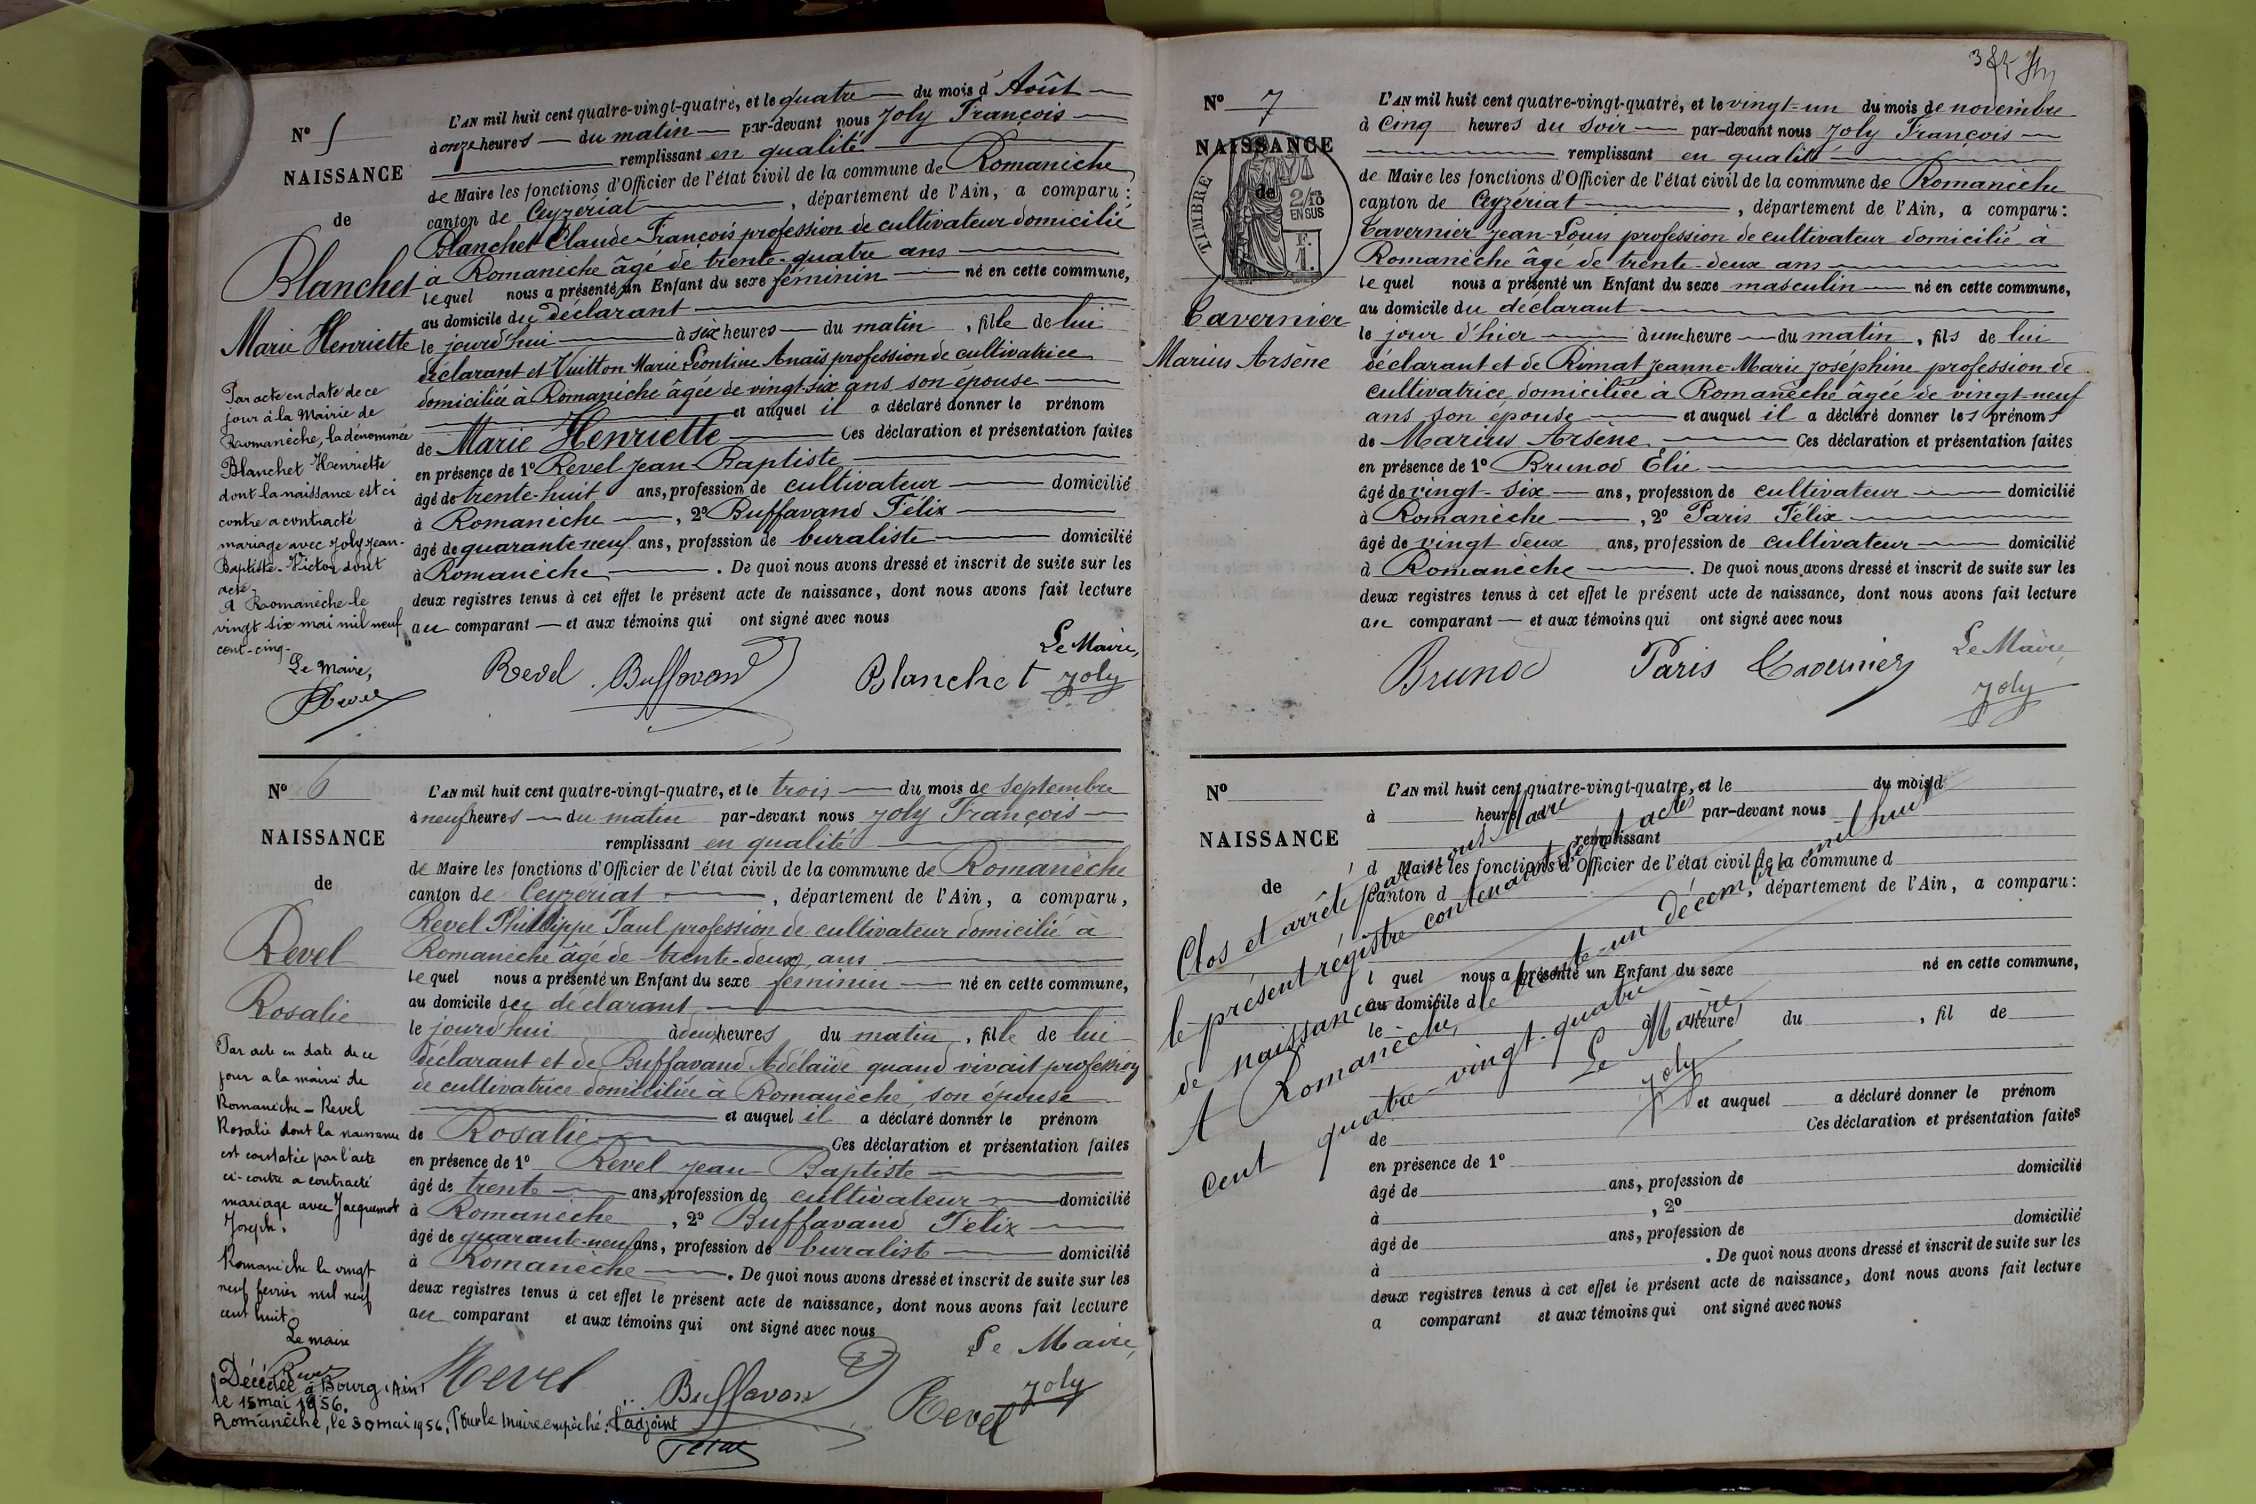 N° 5
NAISSANCE
de
Blanchet
Marie Henriette
Par acte en date de ce
jour à la Mairie de
Romanèche, la dénommée
Blanchet Henriette
dont la naissance est ci
contre a contracté
mariage avec Joly Jean-
Baptiste-Victor dont
acte.
A Romanèche le
vingt six mai mil neuf
cent-cinq.
Le Maire,
Revel
L'AN mil huit cent quatre-vingt-quatre, et le quatre du mois d'Août
à onze heures du matin par-devant nous Joly François
remplissant en qualité
de Maire les fonctions d'Officier de l'état civil de la commune de Romanèche
canton de Ceyzériat, département de l'Ain, a comparu :
Blanchet Claude François profession de cultivateur domicilié
à Romanèche âgé de trente-quatre ans
lequel nous a présenté un Enfant du sexe féminin né en cette commune,
au domicile du déclarant
le jourd'hui à six heures du matin, fille de lui
déclarant et Vuitton Marie Léontine Anaïs profession de cultivatrice
domiciliée à Romanèche âgée de vingt-six ans son épouse
et auquel il a déclaré donner le prénom
de Marie Henriette Ces déclaration et présentation faites
en présence de 1° Revel Jean Baptiste
âgé de trente-huit ans, profession de cultivateur domicilié
à Romanèche, 2° Buffavand Félix
âgé de quarante neuf ans, profession de buraliste domicilié
à Romanèche. De quoi nous avons dressé et inscrit de suite sur les
deux registres tenus à cet effet le présent acte de naissance, dont nous avons fait lecture
au comparant et aux témoins qui ont signé avec nous
Le Maire,
Revel Buffavand Blanchet Joly
N° 6
NAISSANCE
de
Revel
Rosalie
Par acte en date de ce
jour a la mairie de
Romanèche - Revel
Rosalie dont la naissance
est constatée par l'acte
ci-contre a contracté
mariage avec Jacquemot
Joseph.
Romanèche le vingt
neuf fevrier mil neuf
cent huit
Le maire
Revel
Décédée à Bourg (Ain)
le 15 mai 1956.
Romanèche, le 30 mai 1956, Pour le maire empêché: l'adjoint
L'AN mil huit cent quatre-vingt-quatre, et le trois du mois de septembre
à neuf heures du matin par-devant nous Joly François
remplissant en qualité
de Maire les fonctions d'Officier de l'état civil de la commune de Romanèche
canton de Ceyzériat, département de l'Ain, a comparu,
Revel Philippe Paul profession de cultivateur domicilié à
Romanèche âgé de trente-deux ans
lequel nous a présenté un Enfant du sexe féminin né en cette commune,
au domicile du déclarant
le jourd'hui à deux heures du matin, fille de lui
déclarant et de Buffavand Adélaïde quand vivait profession
de cultivatrice domiciliée à Romanèche, son épouse
et auquel il a déclaré donner le prénom
de Rosalie Ces déclaration et présentation faites
en présence de 1° Revel Jean Baptiste
âgé de trente ans, profession de cultivateur domicilié
à Romanèche, 2° Buffavand Félix
âgé de quarante-neuf ans, profession de buraliste domicilié
à Romanèche. De quoi nous avons dressé et inscrit de suite sur les
deux registres tenus à cet effet le présent acte de naissance, dont nous avons fait lecture
au comparant et aux témoins qui ont signé avec nous
Le Maire,
Revel Buffavand Revel Joly
N° 7
NAISSANCE
de
TIMBRE
2/10
EN SUS
F.
1.
Tavernier
Marius Arsène
L'AN mil huit cent quatre-vingt-quatre, et le vingt-un du mois de novembre
à cinq heures du soir par-devant nous Joly François
remplissant en qualité
de Maire les fonctions d'Officier de l'état civil de la commune de Romanèche
canton de Ceyzériat, département de l'Ain, a comparu :
Tavernier Jean-Louis profession de cultivateur domicilié à
Romanèche âgé de trente-deux ans
lequel nous a présenté un Enfant du sexe masculin né en cette commune,
au domicile du déclarant
le jour d'hier à une heure du matin, fils de lui
déclarant et de Rimat Jeanne-Marie Joséphine profession de
cultivatrice, domiciliée à Romanèche âgée de vingt-neuf
ans son épouse et auquel il a déclaré donner les prénoms
de Marius Arsène Ces déclaration et présentation faites
en présence de 1° Brunod Élie
âgé de vingt-six ans, profession de cultivateur domicilié
à Romanèche, 2° Paris Félix
âgé de vingt deux ans, profession de cultivateur domicilié
à Romanèche. De quoi nous avons dressé et inscrit de suite sur les
deux registres tenus à cet effet le présent acte de naissance, dont nous avons fait lecture
au comparant et aux témoins qui ont signé avec nous
Le Maire,
Brunod Paris Tavernier Joly
N°
NAISSANCE
de
L'AN mil huit cent quatre-vingt-quatre, et le du mois d
à heure par-devant nous
remplissant
d Maire les fonctions d'Officier de l'état civil de la commune d
canton d, département de l'Ain, a comparu :
l quel nous a présenté un Enfant du sexe né en cette commune,
au domicile d
le à heure du, fil de
et auquel a déclaré donner le prénom
de Ces déclaration et présentation faites
en présence de 1°
âgé de ans, profession de domicilié
à, 2°
âgé de ans, profession de domicilié
à. De quoi nous avons dressé et inscrit de suite sur les
deux registres tenus à cet effet le présent acte de naissance, dont nous avons fait lecture
a comparant et aux témoins qui ont signé avec nous
Clos et arrêté par nous Maire
le présent régistre contenant sept actes
de naissance
A Romanèche, le trente-un décembre mil huit
cent quatre-vingt-quatre
Le Maire,
Joly